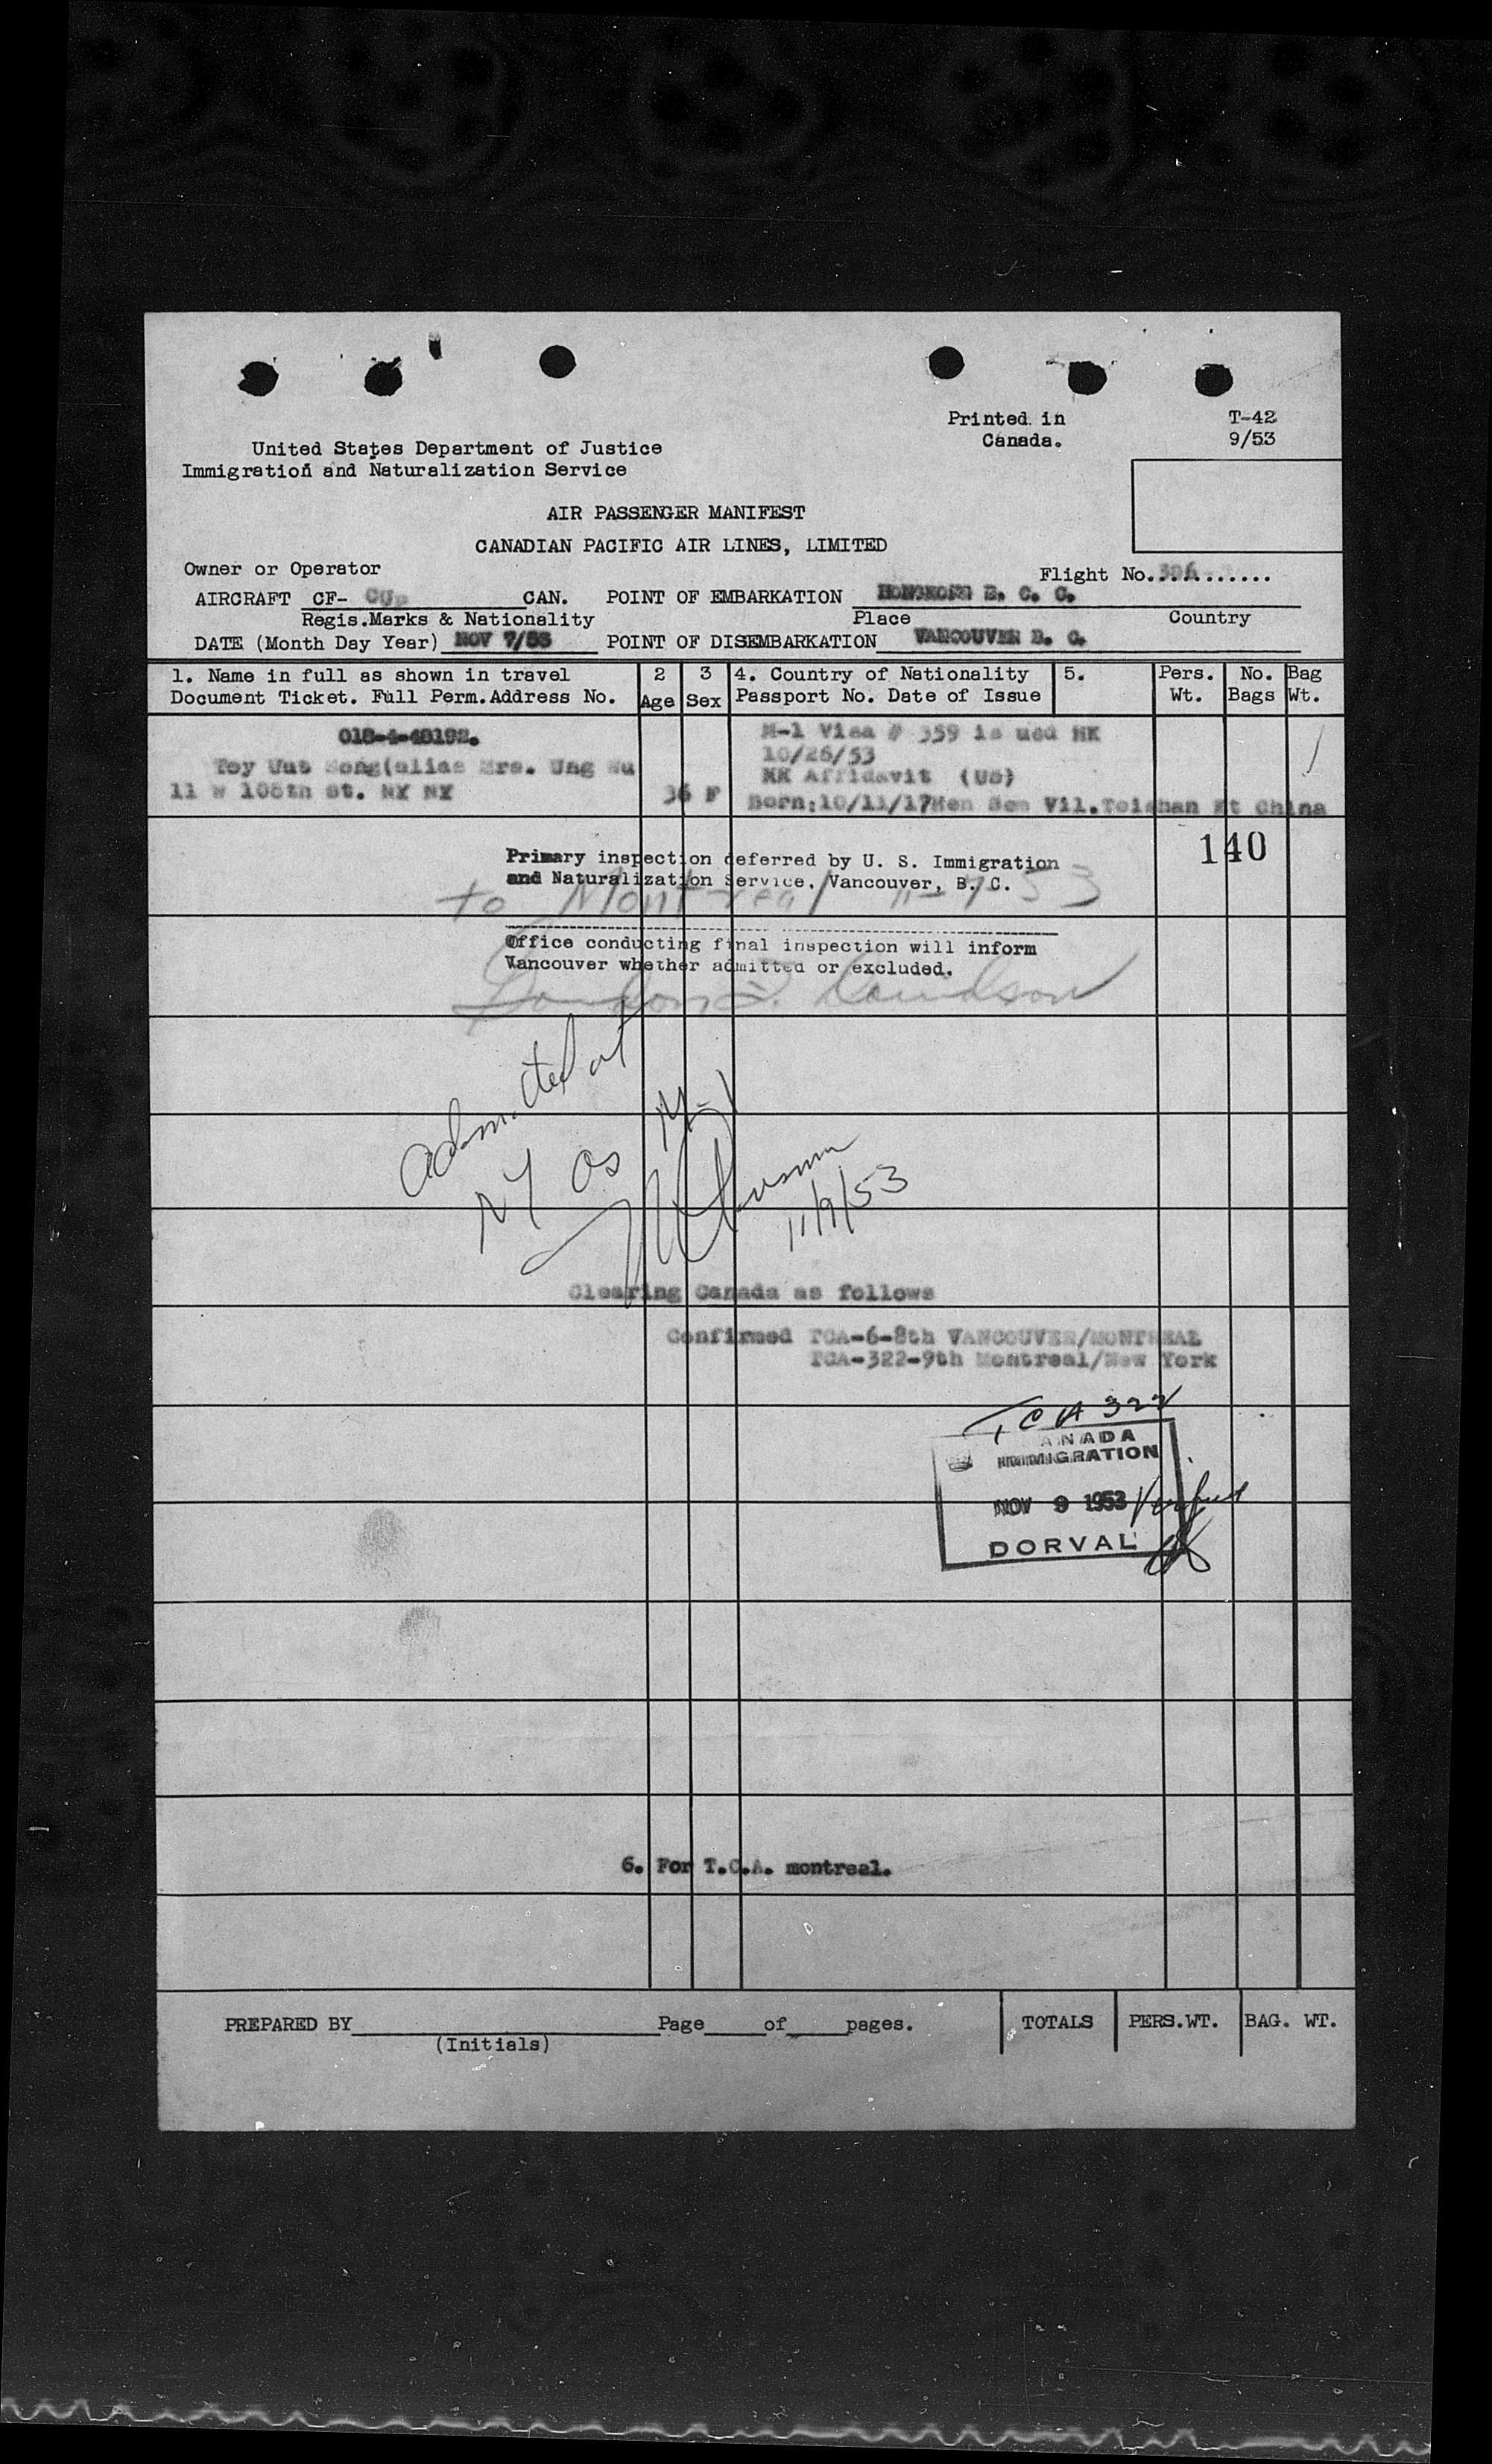 Printed in
Canada.
T-42
9/53
United States Department of Justice
Immigration and Naturalization Service
AIR PASSENGER MANIFEST
CANADIAN PACIFIC AIR LINES, LIMITED
Owner or Operator
Flight No.
AIRCRAFT CF- CAN. POINT OF EMBARKATION HONGKONG B. C. C.
Regis.Marks & Nationality Place Country
DATE (Month Day Year) NOV 7/53 POINT OF DISEMBARKATION VANCOUVER B. C.
1. Name in full as shown in travel
Document Ticket. Full Perm.Address No.
2
Age
3
Sex
4. Country of Nationality
Passport No. Date of Issue
5.
Pers.
Wt.
No.
Bags
Bag
Wt.
018-4-48192.
Toy Uat Mong(alias Mrs. Ung Wu
11 W 108th St. NY NY
36 F
M-1 Visa # 359 is usd HK
10/26/53
HK Affidavit (US)
Born:10/11/17Hen Sem Vil.Toishan Kt China
140
Primary inspection deferred by U. S. Immigration
and Naturalization Service, Vancouver, B. C.
to Montreal 11-7-53
Office conducting final inspection will inform
Vancouver whether admitted or excluded.
Davidson
admitted at
NY as M-1
11/9/53
Clearing Canada as follows
Confirmed TCA-6-8th VANCOUVER/MONTREAL
TCA-322-9th Montreal/New York
TCA 322
CANADA
IMMIGRATION
NOV 9 1953
Verified
DORVAL
6. For T.C.A. montreal.
PREPARED BY Page of pages.
(Initials)
TOTALS
PERS.WT.
BAG. WT.